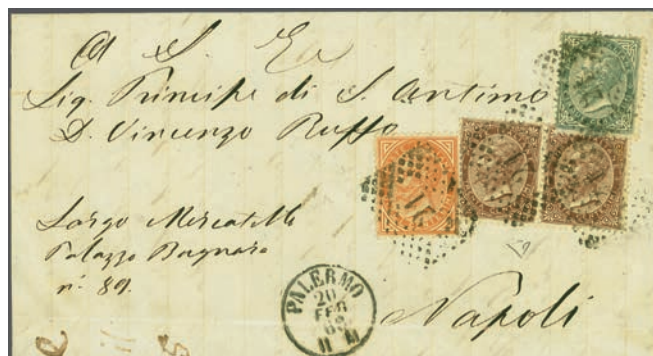 A S. E.
Sig. Principe di S. Antimo
D. Vincenzo Ruffo
Largo Mercatello
Palazzo Bagnara
n. 89.
Napoli
PALERMO
20
FEB
69
11 M